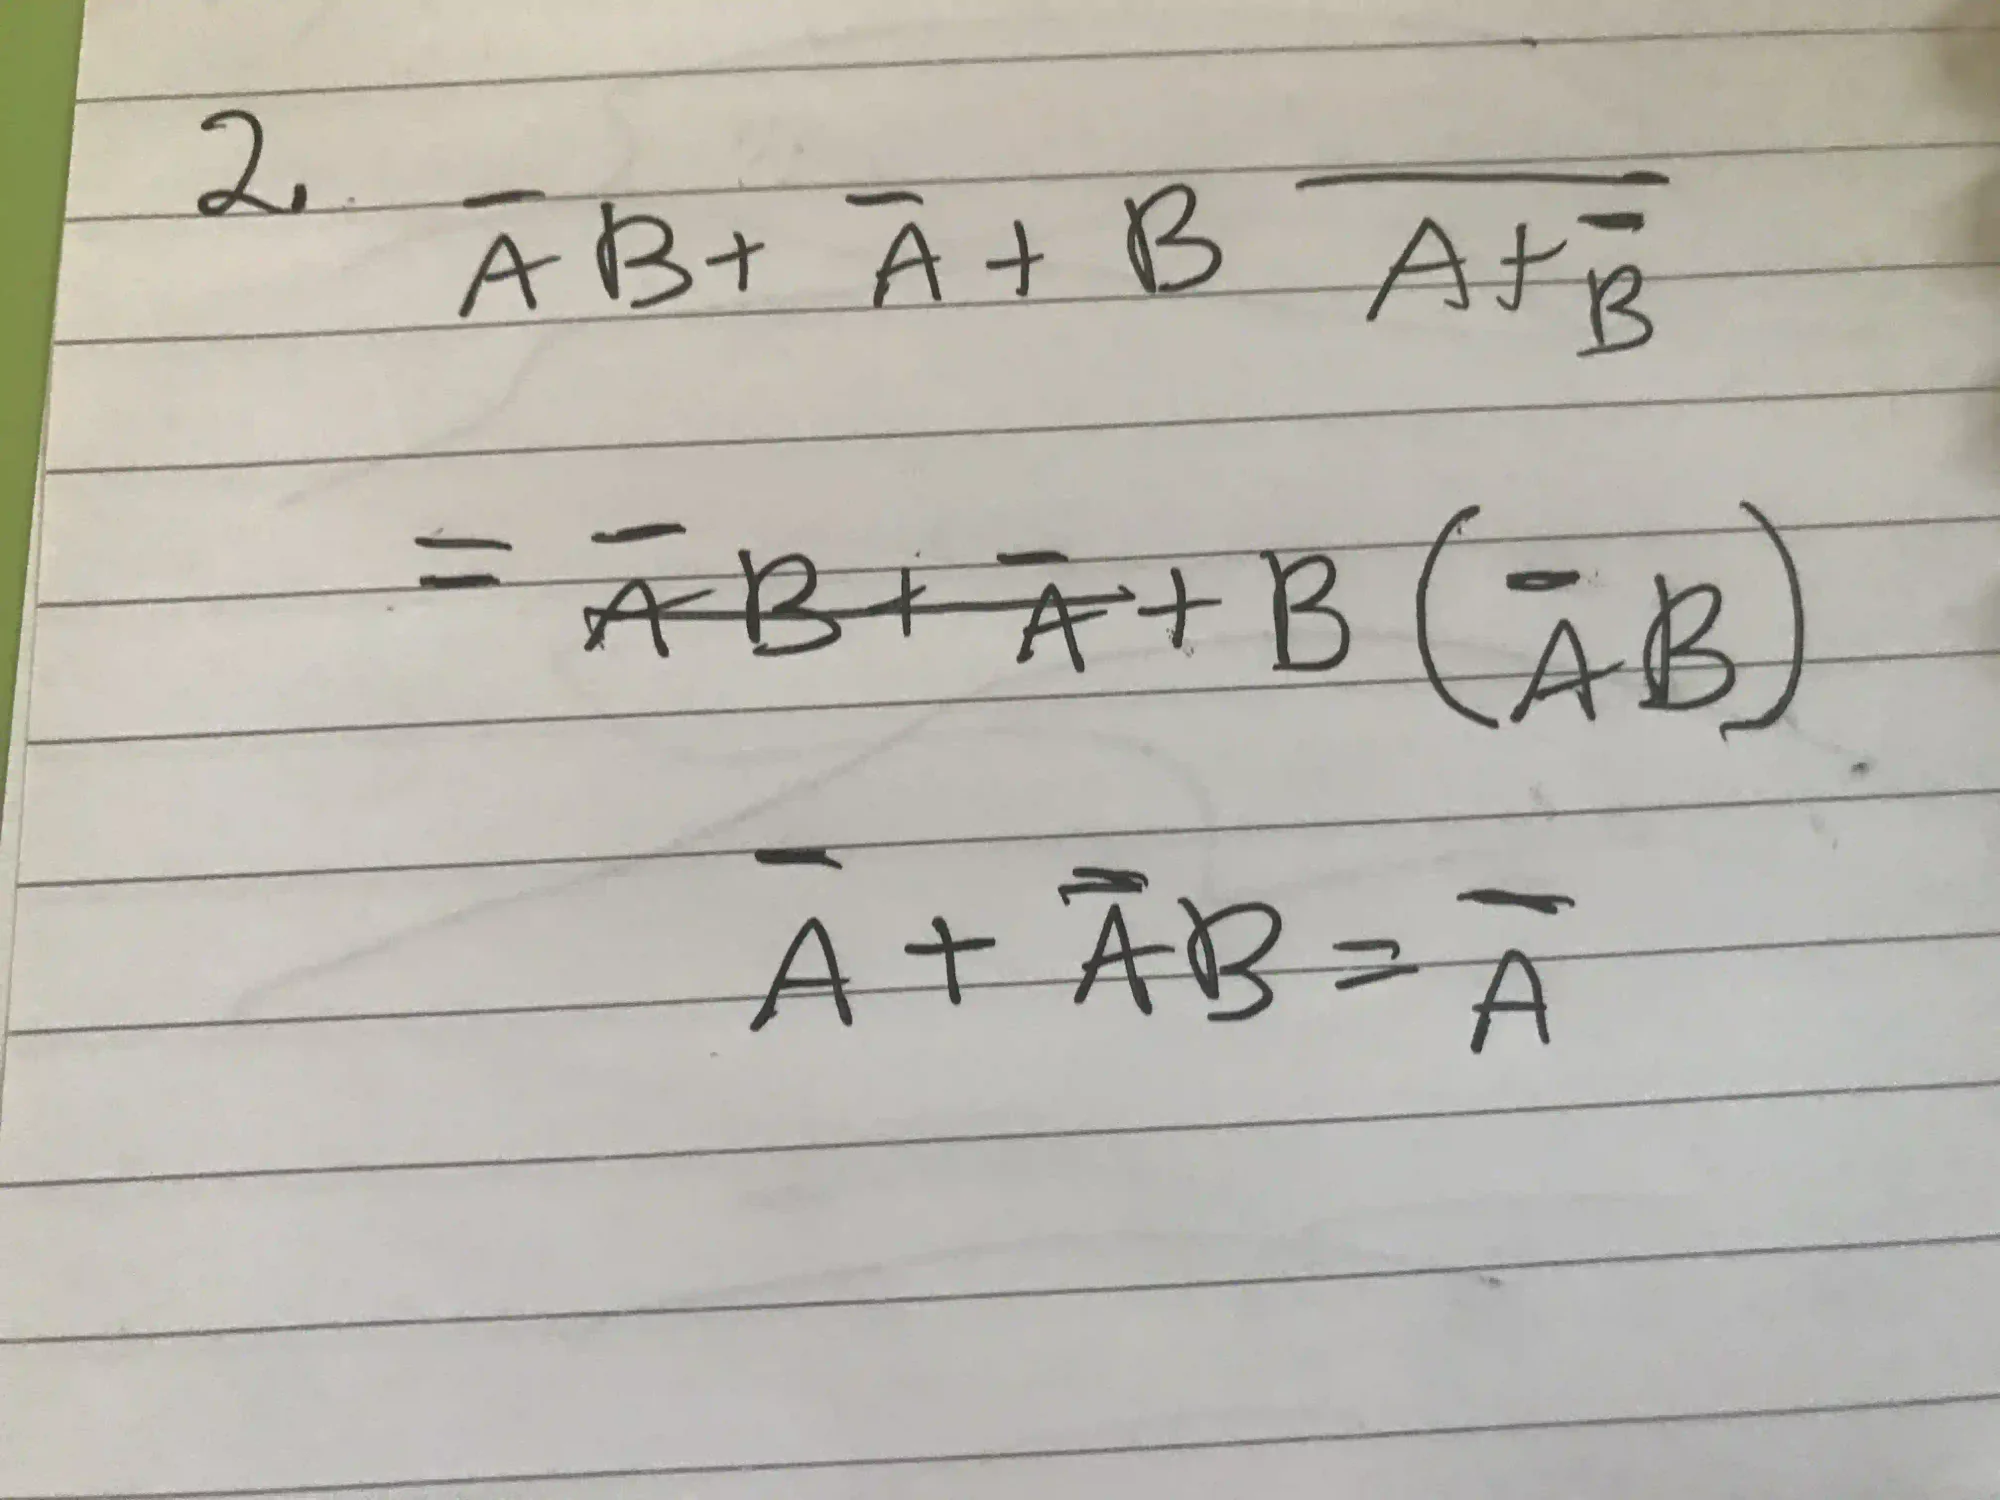 2. A̅ B + A̅ + B \overline{A + B̅}
= A̅ B + A̅ + B (A̅ B)
A̅ + A̅ B = A̅